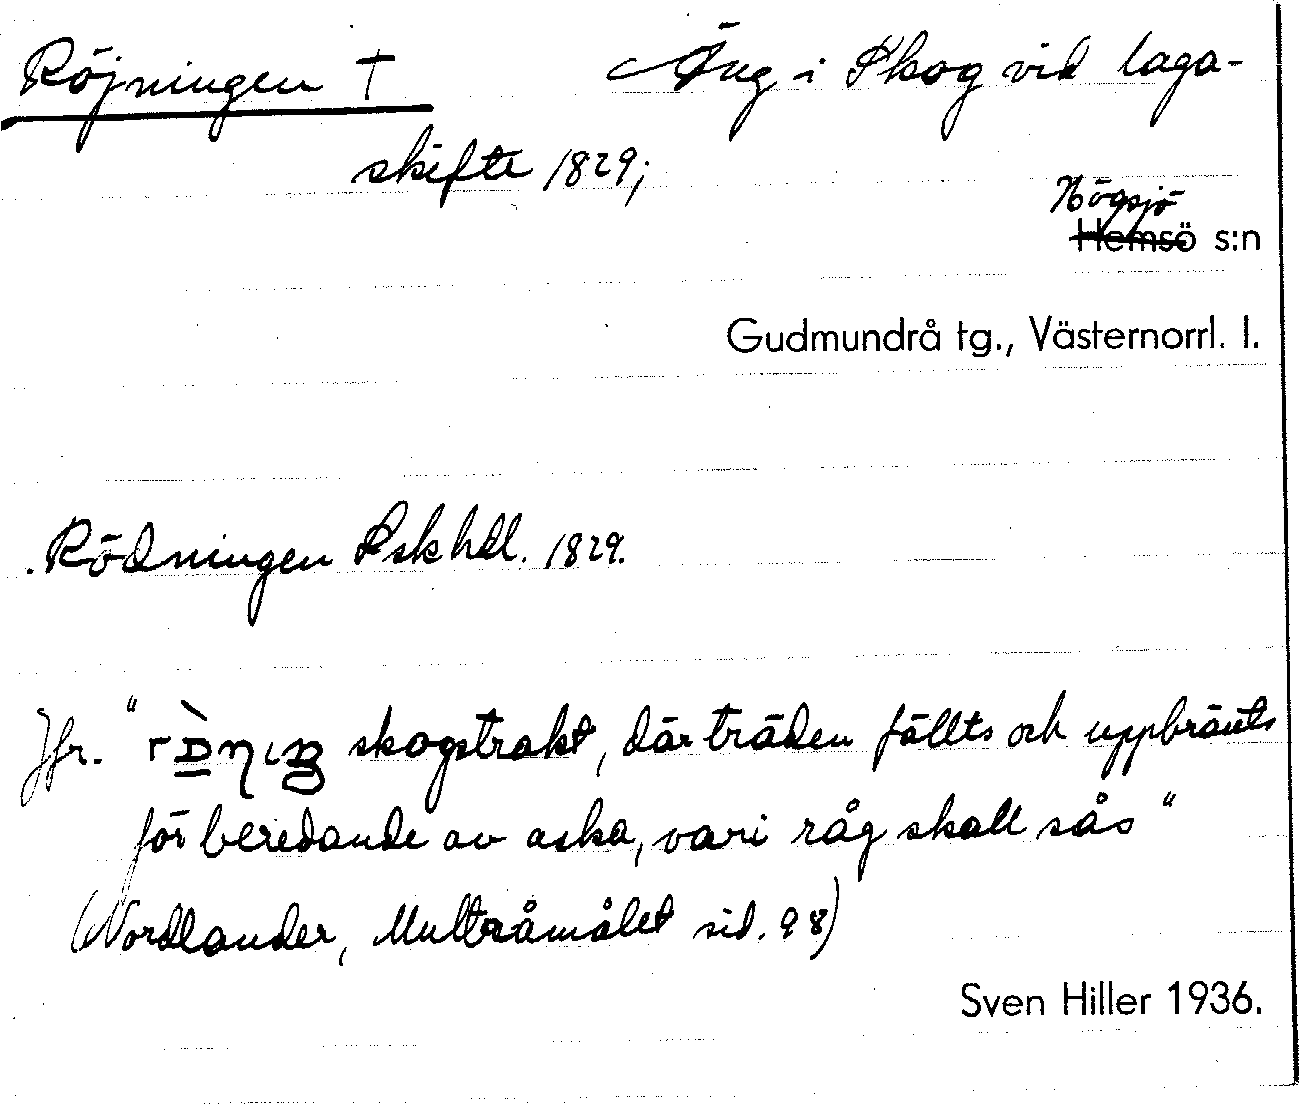 Röjningen † Äng i Skog vid laga-
skifte 1829;
Högsjö
Hemsö s:n
Gudmundrå tg., Västernorrl. l.
Rödningen Skhdl. 1829.
Jfr. "
skogstrakt, där träden fällts och uppbränts
för beredande av aska, vari råg skall sås"
(Nordlander, Multråmålet sid. 98)
Sven Hiller 1936.